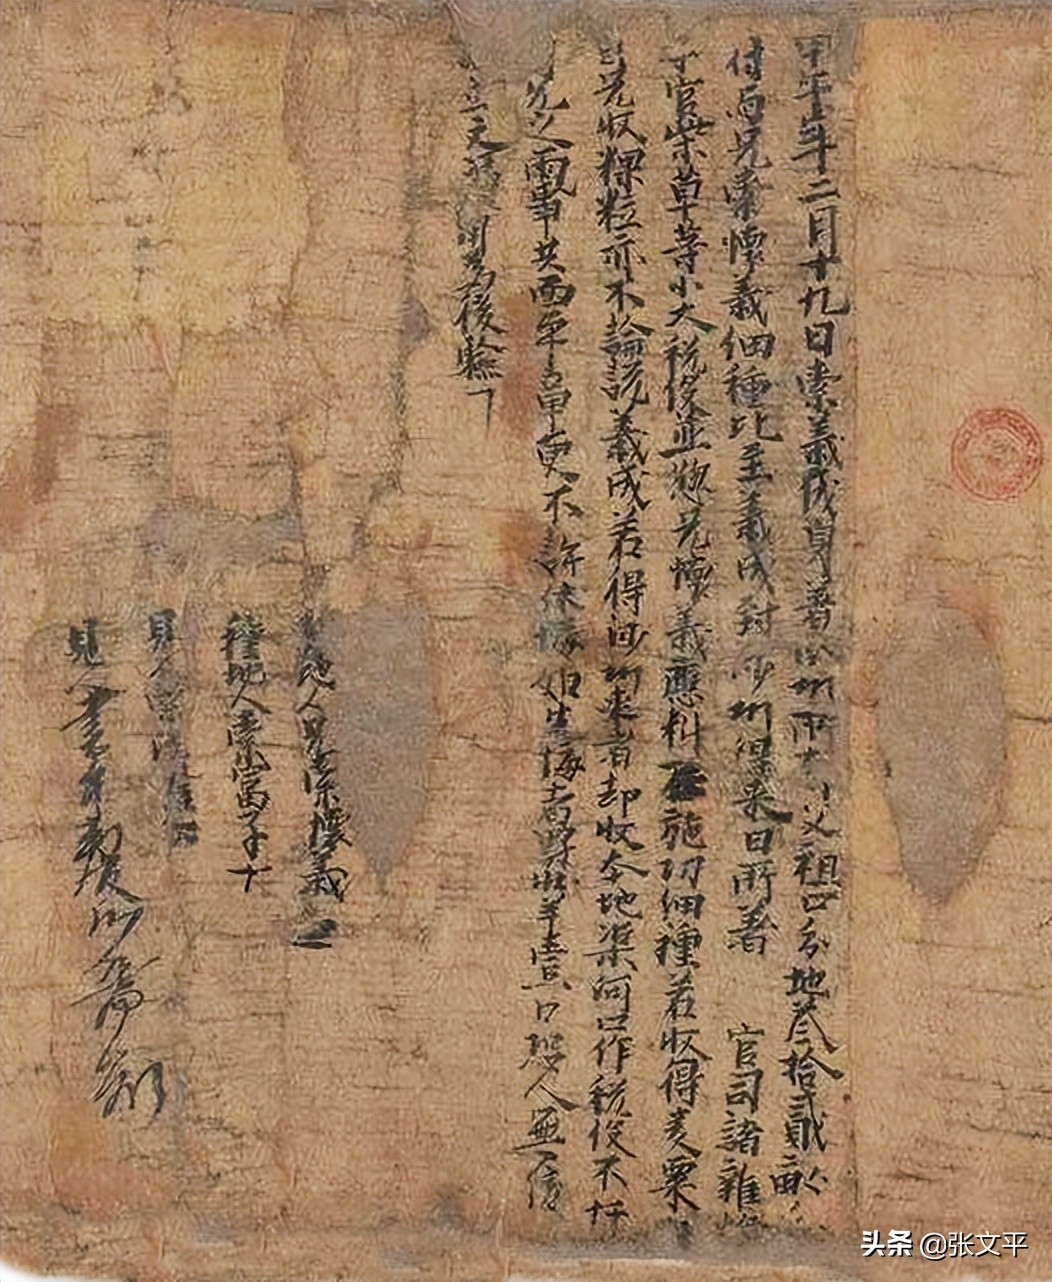 甲午年二月十九日索義成身著瓜州所有父祖口分地叁拾貳畝分
付與兄索懷義佃種比至義成到沙州得來日所著 官司諸雜烽
子官柴草等小大稅役並惣兄懷義應料一任施功佃種若收得麦粟任
自兄收顆粒亦不論說義成若得沙州來者却收本地渠河口作稅役不忓
自兄之事兩共面平章更不許休悔如先悔者罰壯羊壹口恐人無信
立文憑用為後驗
種地人兄索懷義
種地人索富子
見人索
見人書手
头条 @张文平